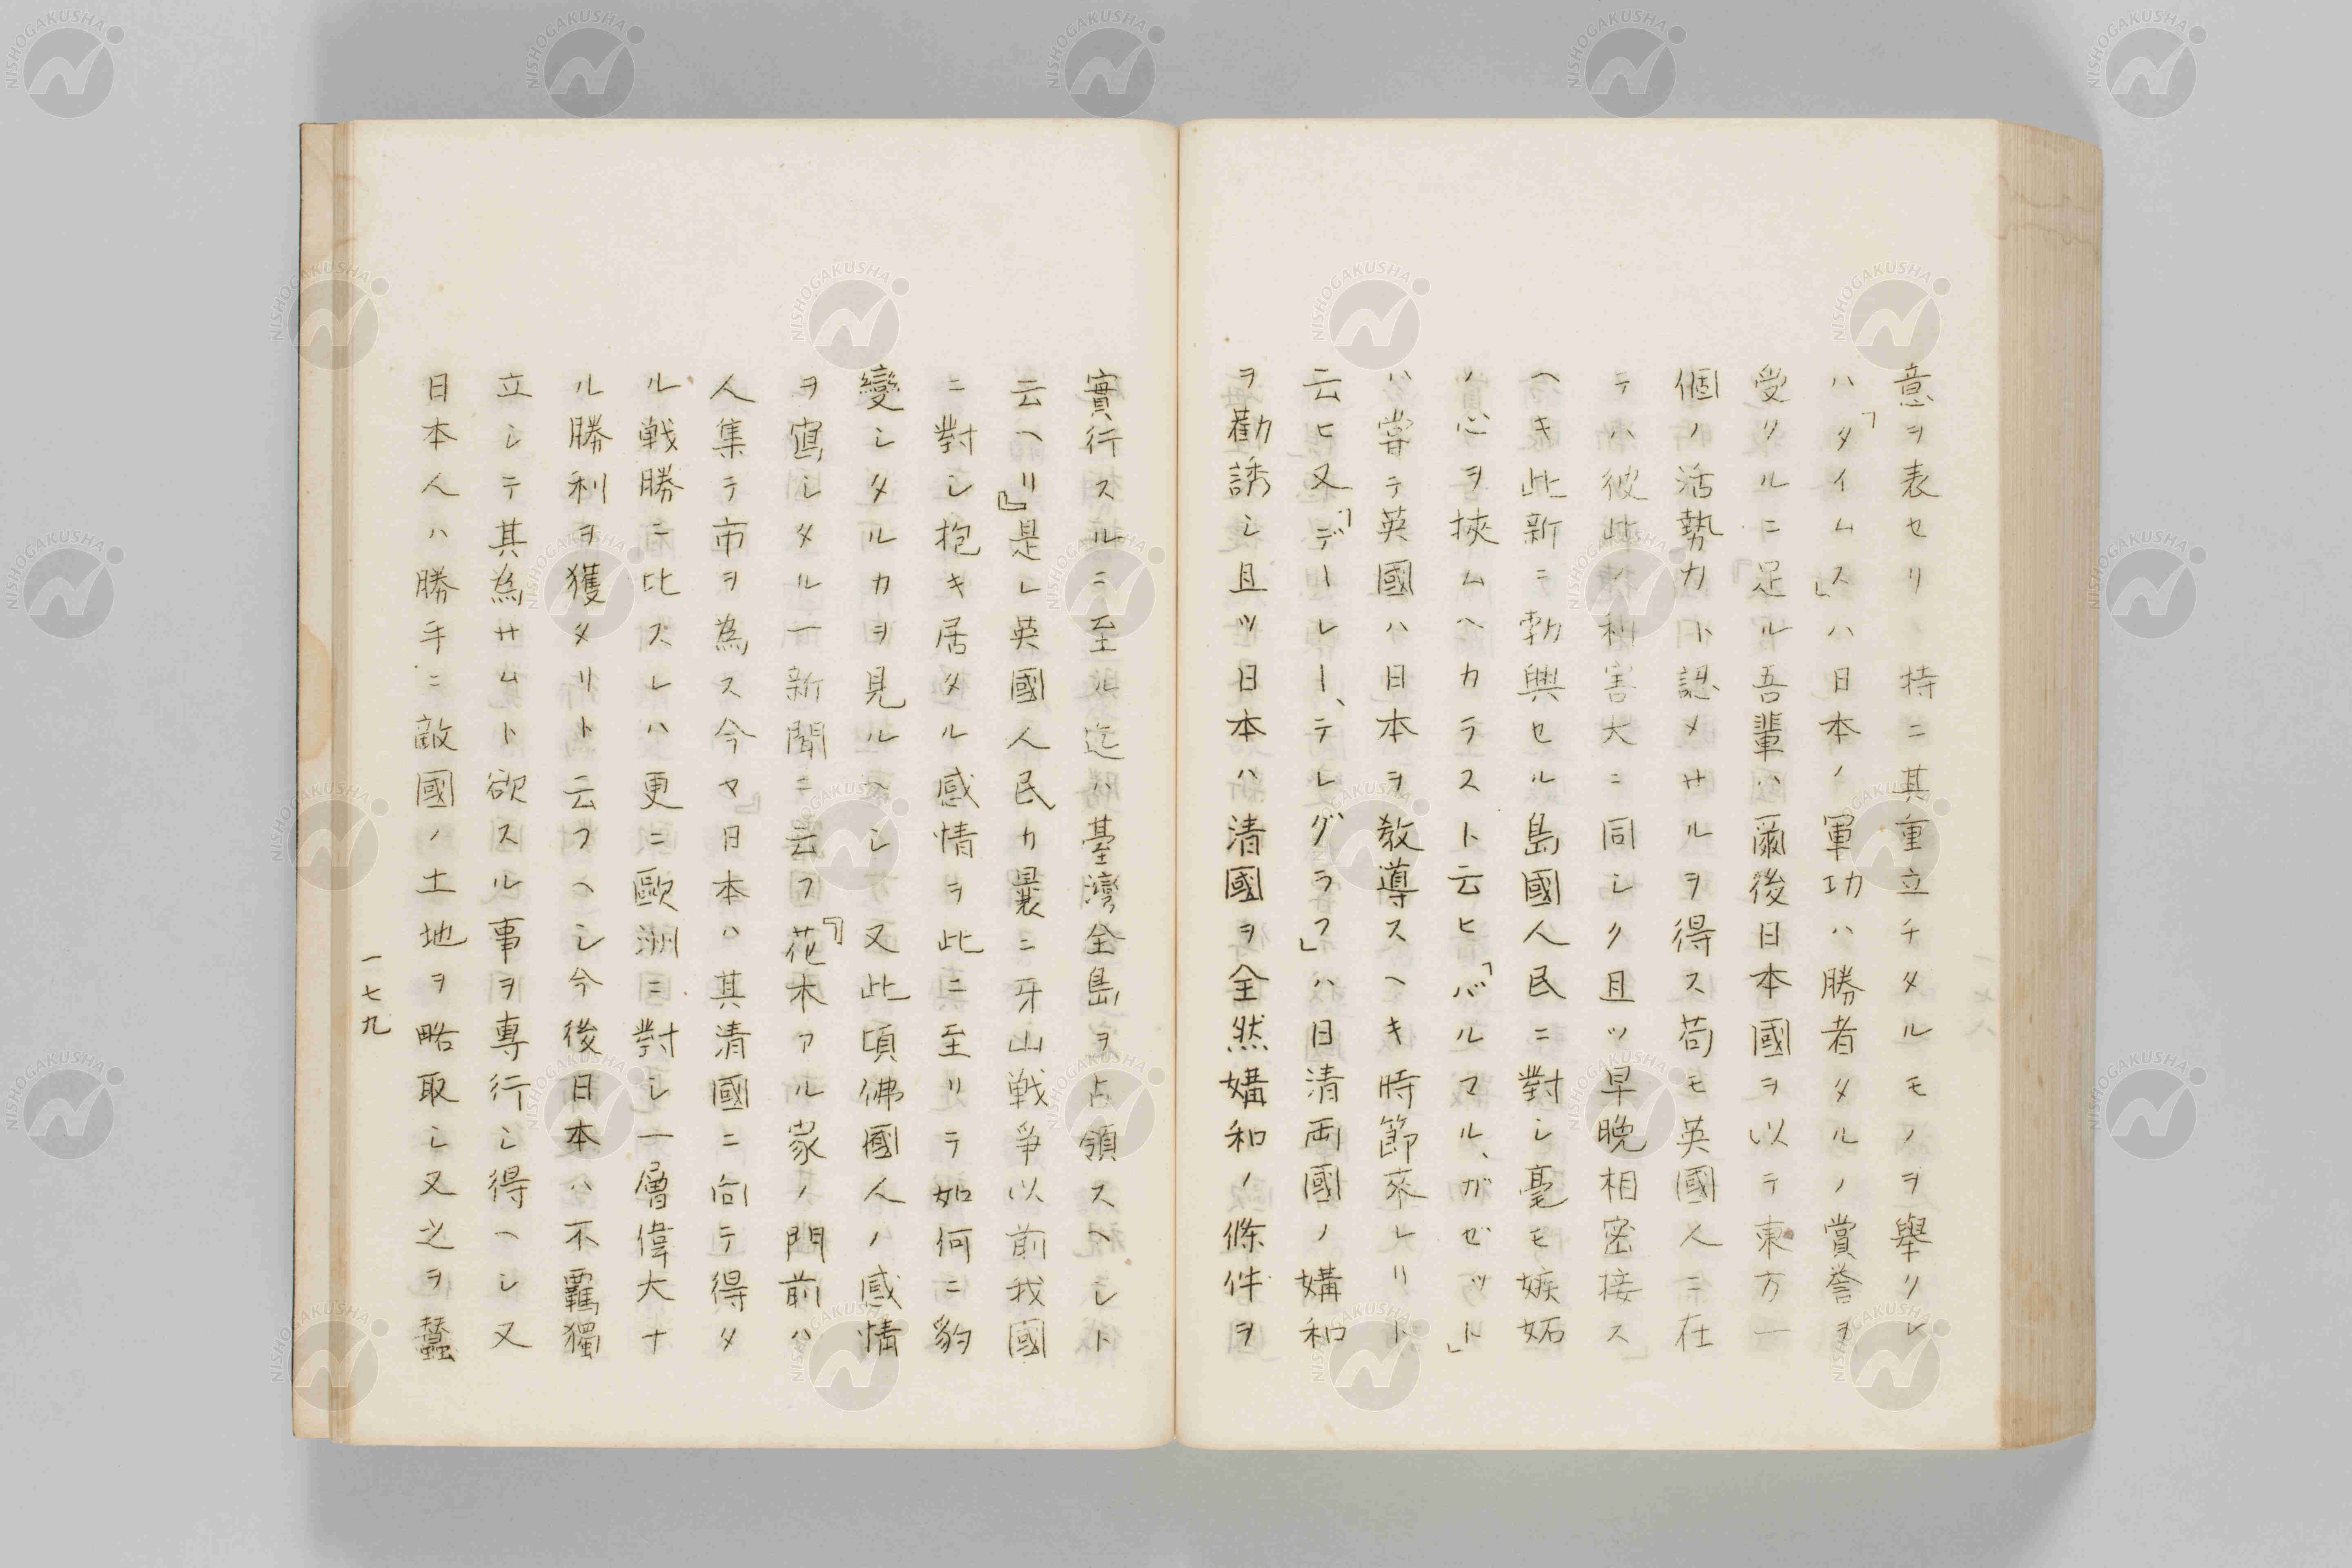 意ヲ表セリ、持ニ其重立チタルモノヲ擧リレ
ハ「タイムス」ハ日本ノ軍功ハ勝者タルノ賞誉ヲ
受クルニ足ル吾輩ハ爾後日本國ヲ以テ東方一
個ノ活勢力ト認メサルヲ得ス苟モ英國人ニ在
テハ彼此ノ利害大ニ同シク且ツ早晩相密接ス
ヘキ此新ニ勃興セル島國人民ニ對シ毫モ嫉妬
ノ心ヲ挾ムヘカラスト云ヒ「バルマル、ガゼツト」
ハ嘗テ英國ハ日本ヲ教導スヘキ時節來レリト
云ヒ又「デーレー、テレグラフ」ハ日清両國ノ媾和
ヲ勸誘シ且ツ日本ハ清國ヲ全然媾和ノ條件ヲ
實行スルニ至ル迄ハ臺灣全島ヲ占領スヘシト
云ヘリ』是レ英國人民カ曩ニ牙山戦爭以前我國
ニ對シ抱キ居タル感情ヲ此ニ至リテ如何ニ豹
變シタルカヲ見ルヘシ又此頃佛國人ノ感情
ヲ寫シタル一新聞ニ云フ『花木アル家ノ門前ハ
人集テ市ヲ為ス今ヤ日本ハ其清國ニ向テ得タ
ル戦勝ニ比スレハ更ニ歐洲ニ對シ一層偉大ナ
ル勝利ヲ獲タリト云フヘシ今後日本ハ不羈獨
立シテ其為サムト欲スル事ヲ專行シ得ヘシ又
日本人ハ勝手ニ敵國ノ土地ヲ略取シ又之ヲ蠶
一七九
NISHOGAKUSHA